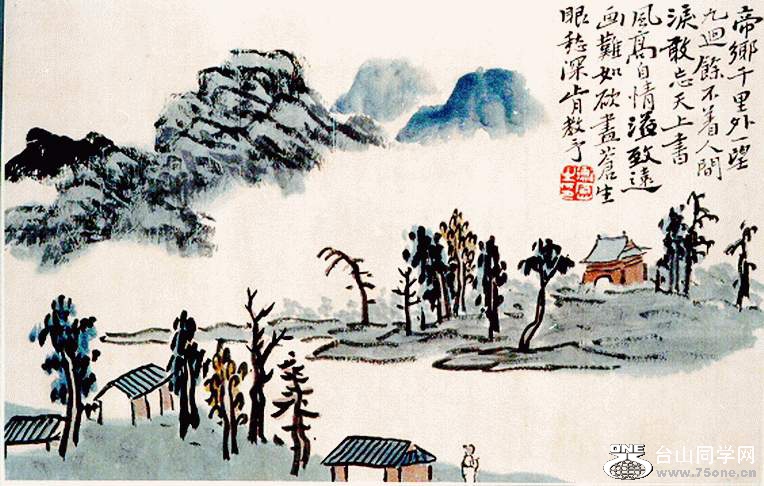 帝鄉千里外望
九迴餘不着人間
淚敢忘天上書
風高自情溢致遠
画難如欲盡蒼生
眼愁深肯教予
ONE
台山同学网
www.75one.cn